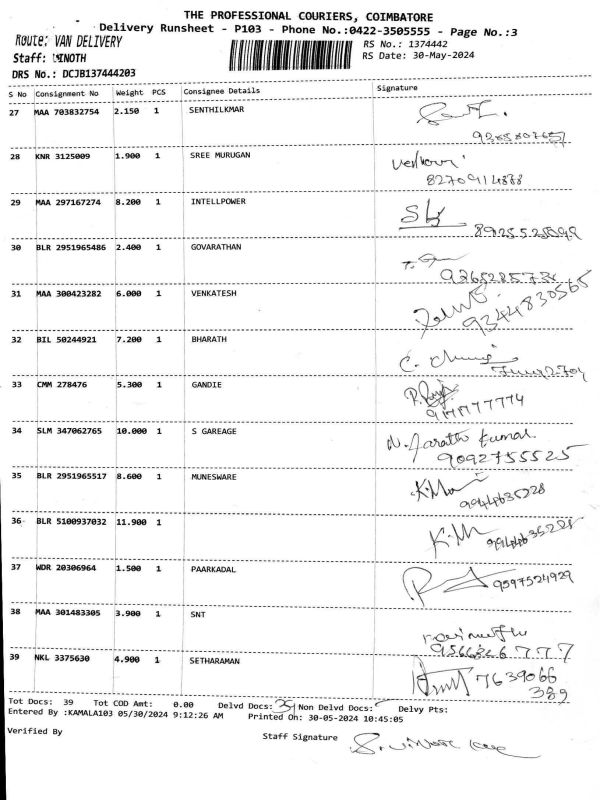 THE PROFESSIONAL COURIERS, COIMBATORE
Delivery Runsheet - P103 - Phone No.:0422-3505555 - Page No.:3
Route: VAN DELIVERY
RS No.: 1374442
Staff: VINOTH
RS Date: 30-May-2024
DRS No.: DCJB137444203
S No Consignment No Weight PCS Consignee Details Signature
27 MAA 703832754 2.150 1 SENTHILKMAR
28 KNR 3125009 1.900 1 SREE MURUGAN
8270914888
29 MAA 297167274 8.200 1 INTELLPOWER
8925525099
30 BLR 2951965486 2.400 1 GOVARATHAN
31 MAA 300423282 6.000 1 VENKATESH
9344830565
32 BIL 50244921 7.200 1 BHARATH
33 CMM 278476 5.300 1 GANDIE
34 SLM 347062765 10.000 1 S GAREAGE
N. Jarath Kumar
9092755525
35 BLR 2951965517 8.600 1 MUNESWARE
9944635228
36 BLR 5100937032 11.900 1
9944635228
37 WDR 20306964 1.500 1 PAARKADAL
9597524929
38 MAA 301483305 3.900 1 SNT
9566326777
39 NKL 3375630 4.900 1 SETHARAMAN
7639066
389
Tot Docs: 39 Tot COD Amt: 0.00 Delvd Docs: 39 Non Delvd Docs: Delvy Pts:
Entered By :KAMALA103 05/30/2024 9:12:26 AM Printed On: 30-05-2024 10:45:05
Verified By Staff Signature